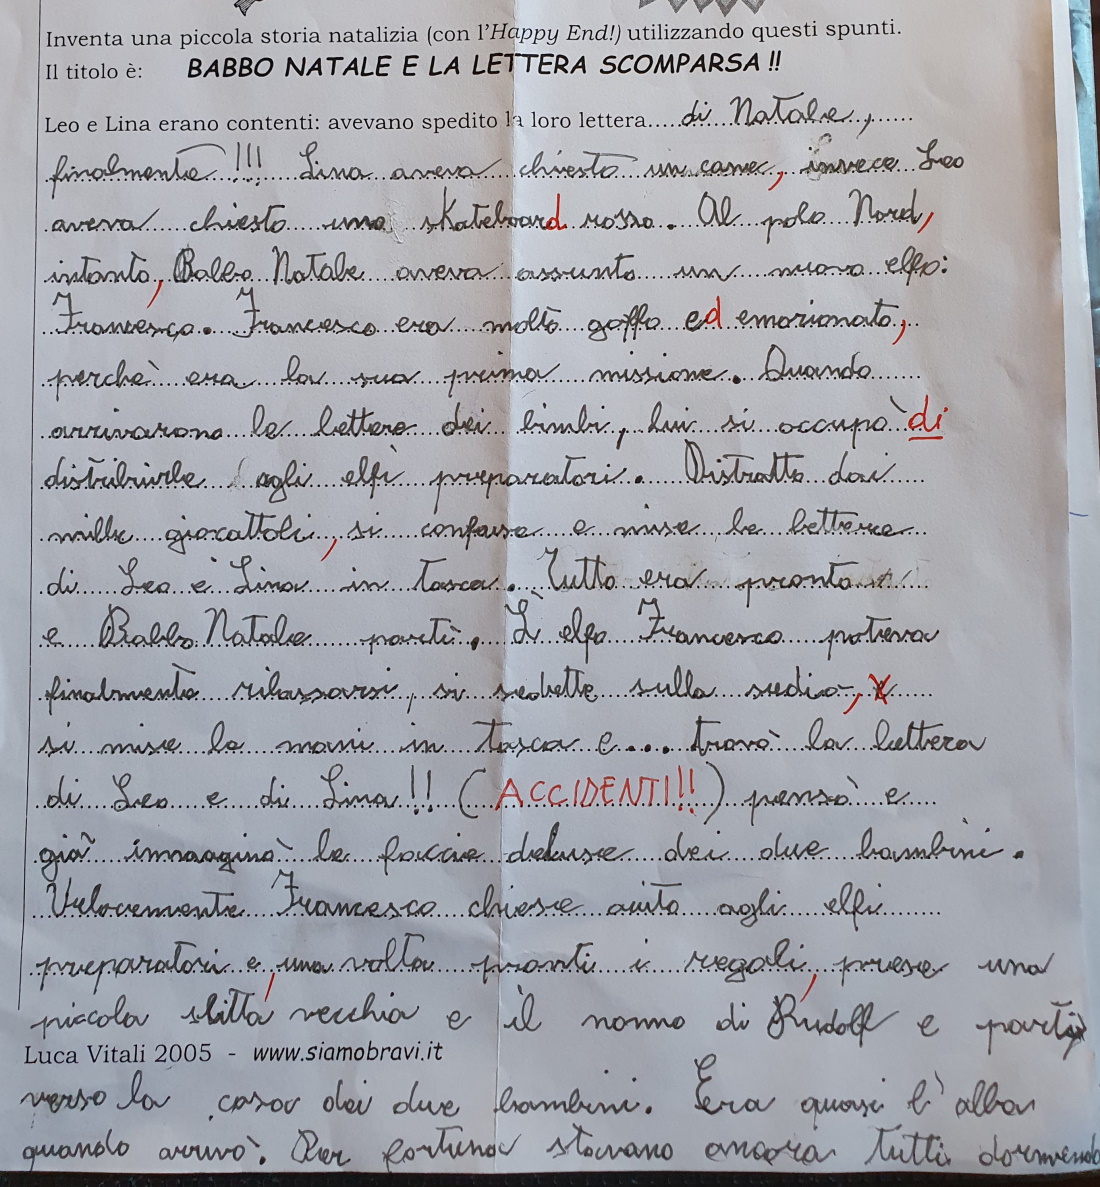 Inventa una piccola storia natalizia (con l'Happy End!) utilizzando questi spunti.
Il titolo è: BABBO NATALE E LA LETTERA SCOMPARSA !!
Leo e Lina erano contenti: avevano spedito la loro lettera.....di Natale,......
finalmente !!! Lina aveva chiesto un cane, invece Leo
aveva chiesto uno skateboard rosso. Al polo Nord,
intanto, Babbo Natale aveva assunto un nuovo elfo:
Francesco. Francesco era molto goffo ed emozionato,
perchè era la sua prima missione. Quando
arrivarono le lettere dei bimbi, lui si occupò di
distribuirle agli elfi preparatori. Distratto dai
mille giocattoli, si confuse e mise le lettere
di Leo e Lina in tasca. Tutto era pronto
e Babbo Natale partì. L'elfo Francesco poteva
finalmente rilassarsi, si sedette sulla sedia,
si mise le mani in tasca e.... trovò la lettera
di Leo e di Lina!! (ACCIDENTI!!!) pensò e
già immaginò le faccie deluse dei due bambini.
Velocemente Francesco chiese aiuto agli elfi
preparatori e, una volta pronti i regali, prese una
piccola slitta vecchia e il nonno di Rudolf e partì
Luca Vitali 2005 - www.siamobravi.it
verso la casa dei due bambini. Era quasi l'alba
quando arrivò. Per fortuna stavano ancora tutti dormendo